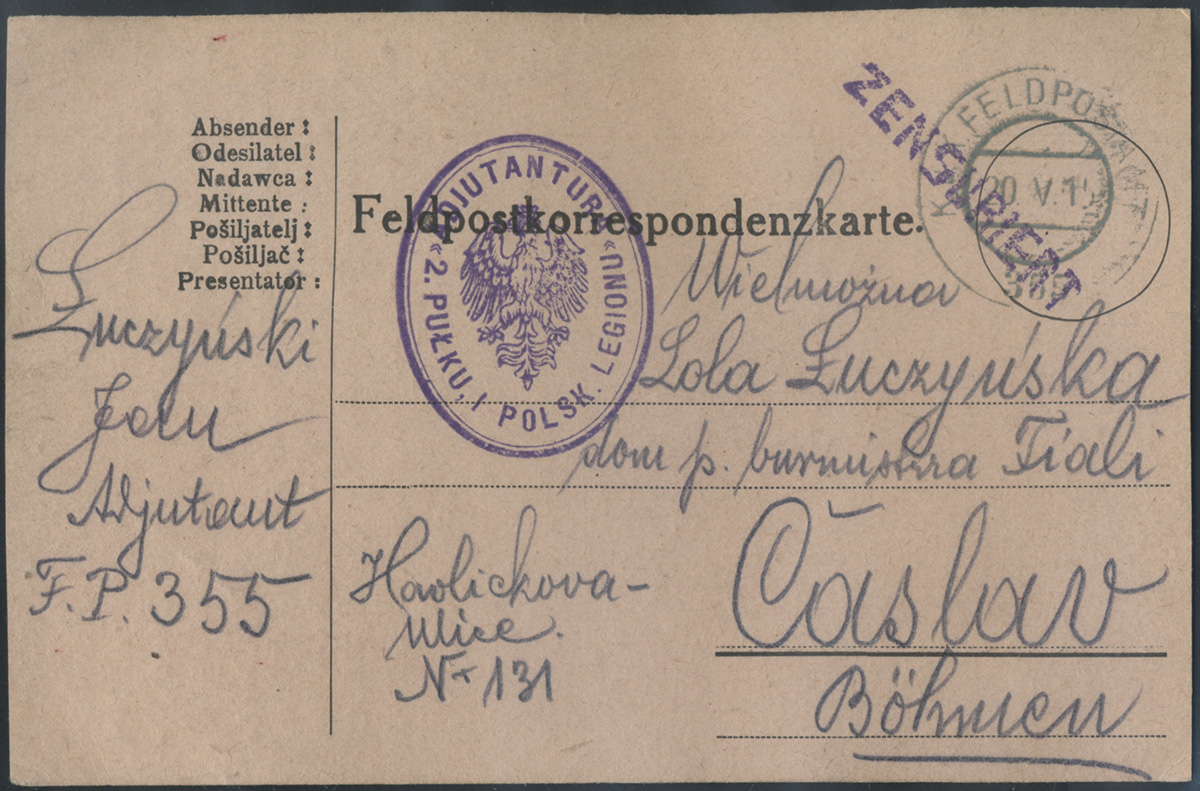 Absender :
Odesilatel :
Nadawca :
Mittente :
Pošiljatelj :
Pošiljač :
Presentator :
Łuczyński
Jan
Adjutant
F.P. 355
Feldpostkorrespondenzkarte.
ADJUTANTURA
«2. PUŁKU, I POLSK. LEGIONU»
ZENSURIERT
K.u.K. FELDPOSTAMT
20 V.15
355
Wielmożna
Lola Łuczyńska
dom p. burmistrza Fiali
Čáslav
Böhmen
Havlickova-
ulice.
Nr 131